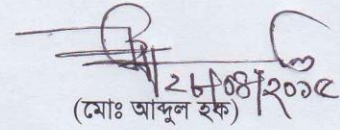 ২৮/০৪/২০১৫
(মোঃ আব্দুল হক)